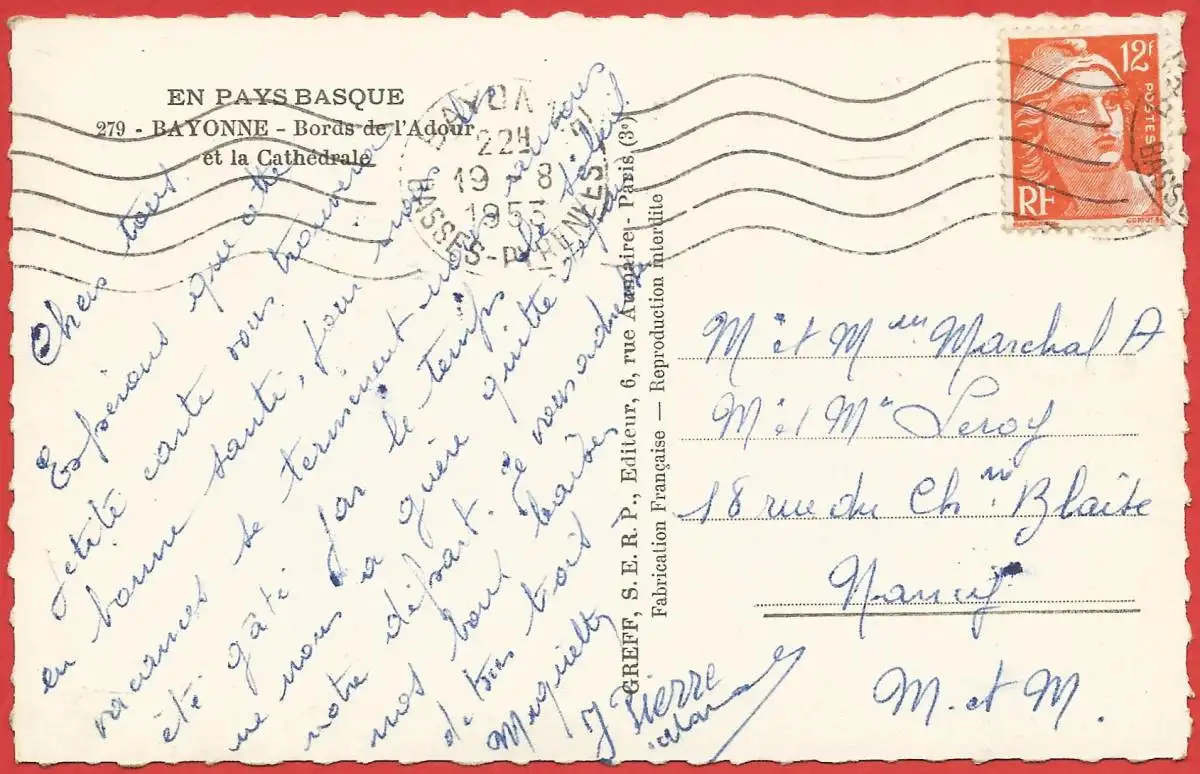 EN PAYS BASQUE
279 - BAYONNE - Bords de l'Adour
et la Cathédrale
22H
19 - 8
1953
BASSES-PYRENEES
12F
POSTES
RF
BASSE
Chers tous.
Espérons que cette
petite carte vous trouvera
en bonne santé, pour nous les
vacances se terminent nous
été gâté par le temps le soleil
ne nous a guère quitté depuis
notre départ. Je vous adresse
mes bons baisers
de tous trois
Muguette
J Pierre
GREFF, S. E. R. P., Editeur, 6, rue Aumaire - Paris (3e)
Fabrication Française — Reproduction interdite
Mr et Mme Marchal A
Mr et Me Leroy
18 rue du Chn Blaise
Nancy
M. et M.